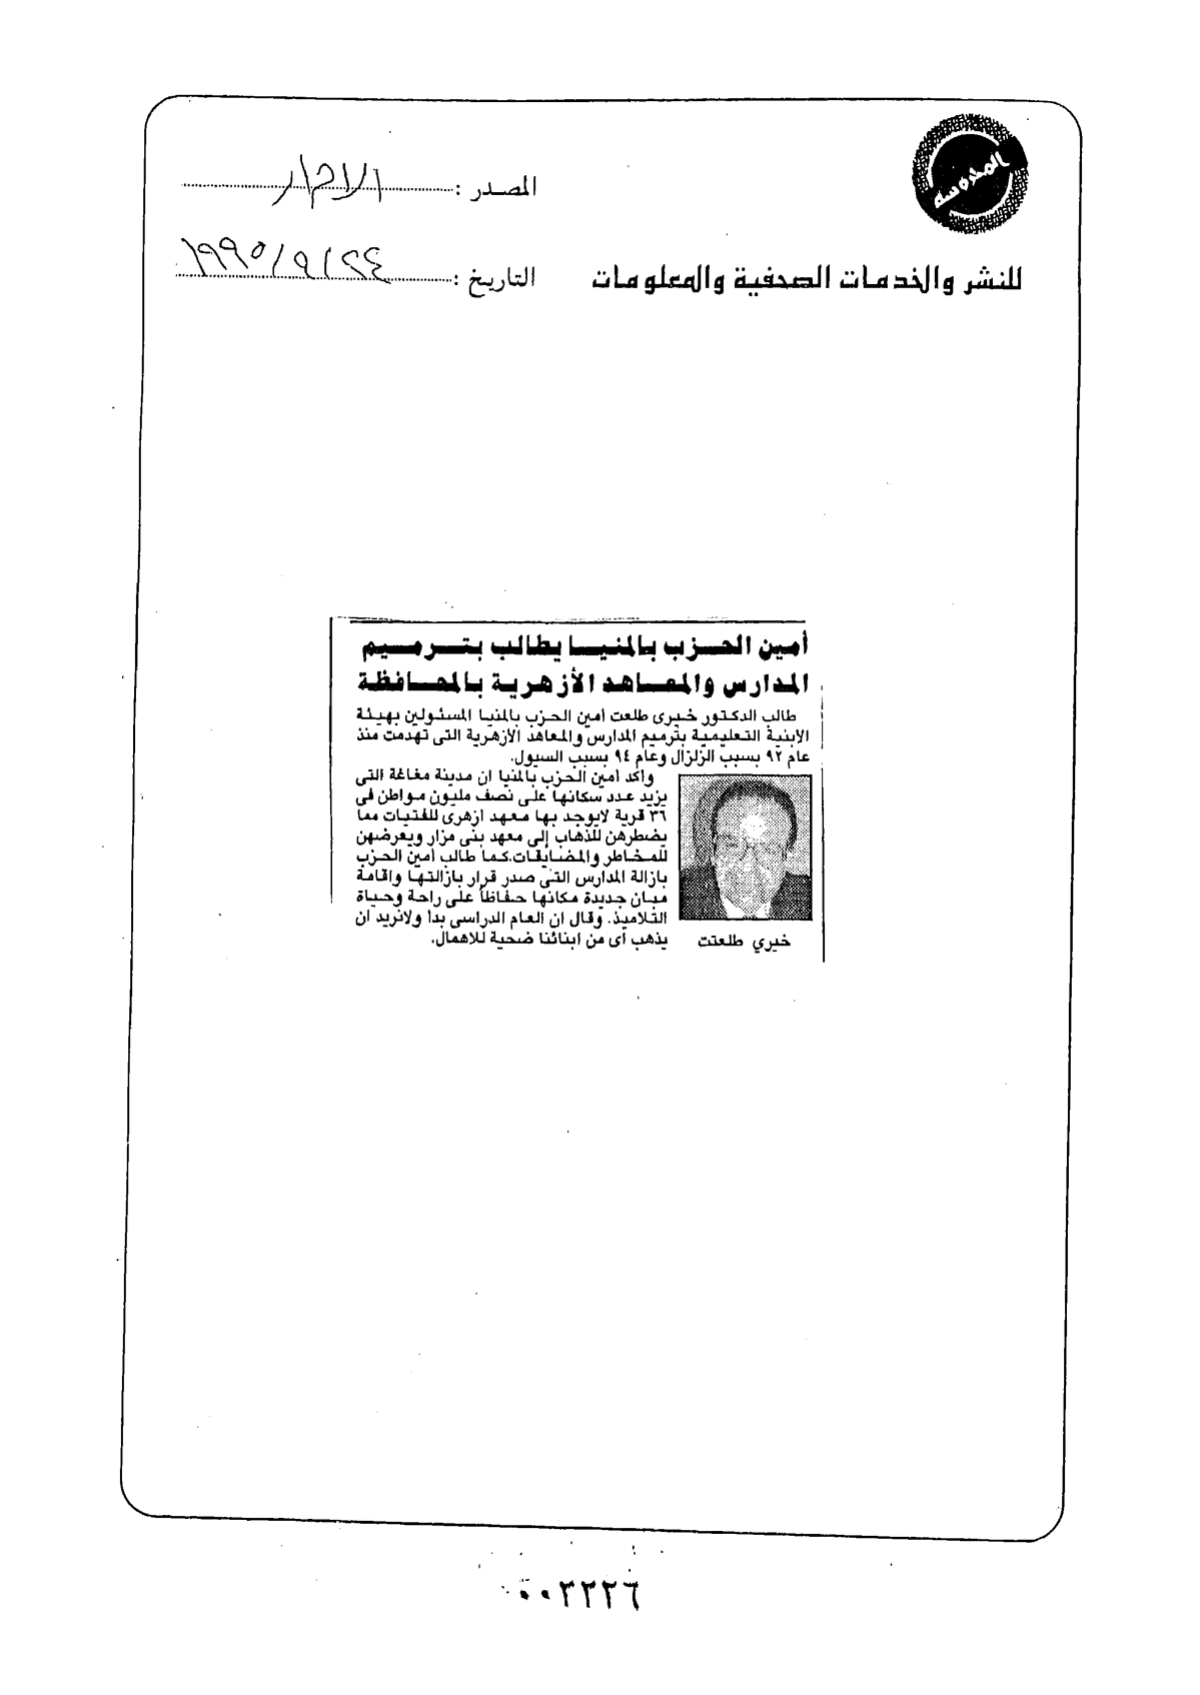 المحروسة
المصدر : الاحرار
للنشر والخدمات الصحفية والمعلومات
التاريخ : ٢٤ / ٩ / ١٩٩٥
أمين الحزب بالمنيا يطالب بترميم
المدارس والمعاهد الأزهرية بالمحافظة
طالب الدكتور خيرى طلعت أمين الحزب بالمنيا المسئولين بهيئة
الابنية التعليمية بترميم المدارس والمعاهد الازهرية التى تهدمت منذ
عام ٩٢ بسبب الزلزال وعام ٩٤ بسبب السيول.
واكد أمين الحزب بالمنيا ان مدينة مغاغة التى
يزيد عدد سكانها على نصف مليون مواطن فى
٣٦ قرية لايوجد بها معهد ازهرى للفتيات مما
يضطرهن للذهاب إلى معهد بنى مزار ويعرضهن
للمخاطر والمضايقات.كما طالب أمين الحزب
بازالة المدارس التى صدر قرار بازالتها واقامة
مبان جديدة مكانها حفاظاً على راحة وحياة
التلاميذ. وقال ان العام الدراسى بدا ولانريد ان
يذهب أى من ابنائنا ضحية للاهمال.
خيري طلعتت
٠٠٣٢٢٦